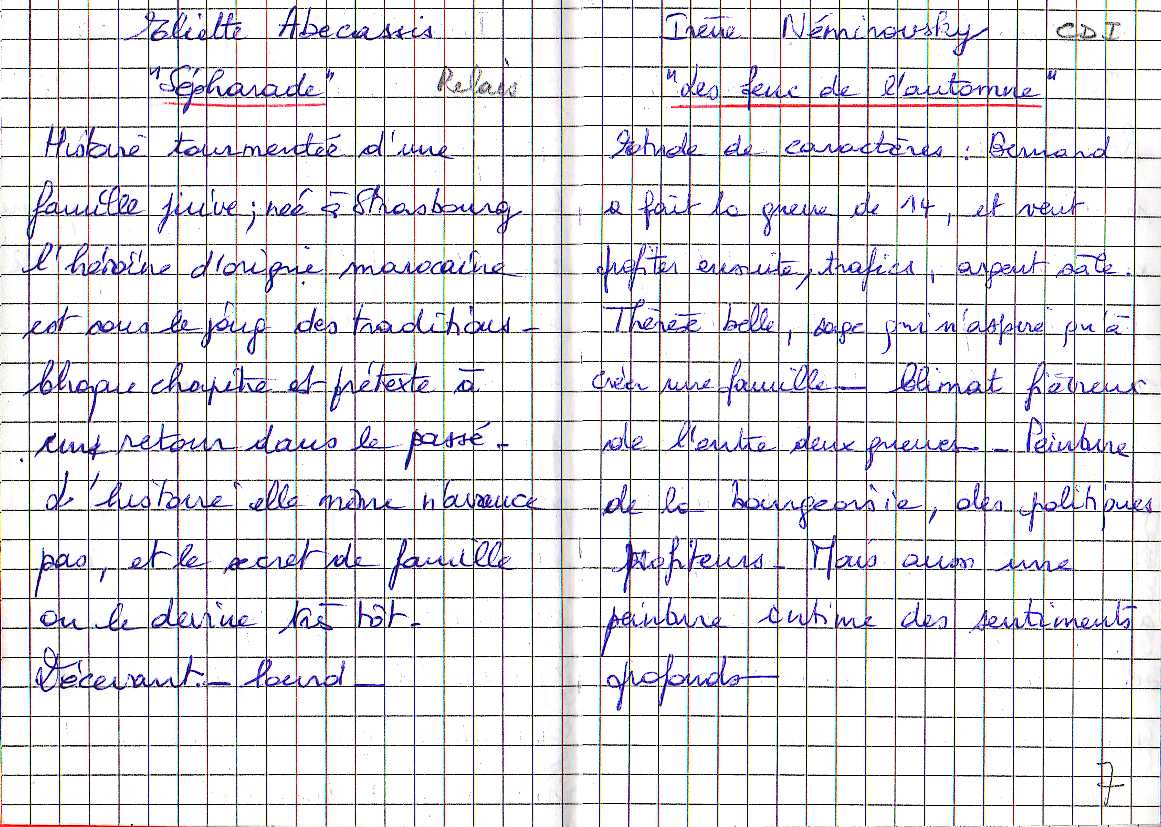 Eliette Abecassis
"Sépharade" Relais
Histoire tourmentée d'une
famille juive ; née à Strasbourg
l'héroïne d'origine marocaine
est sous le joug des traditions -
Chaque chapitre est prétexte à
un retour dans le passé -
L'histoire elle même n'avance
pas, et le secret de famille
on le devine très tôt -
Décevant. - lourd -
Irène Némirovsky CDI
"Les feux de l'automne"
Etude de caractères : Bernard
a fait la guerre de 14, et veut
profiter ensuite, trafics, argent sale.
Thérèse belle, sage qui n'aspire qu'à
créer une famille - Climat fiévreux
de l'entre deux guerres - Peinture
de la bourgeoisie, des politiques
profiteurs - Mais aussi une
peinture intime des sentiments
profonds -
7